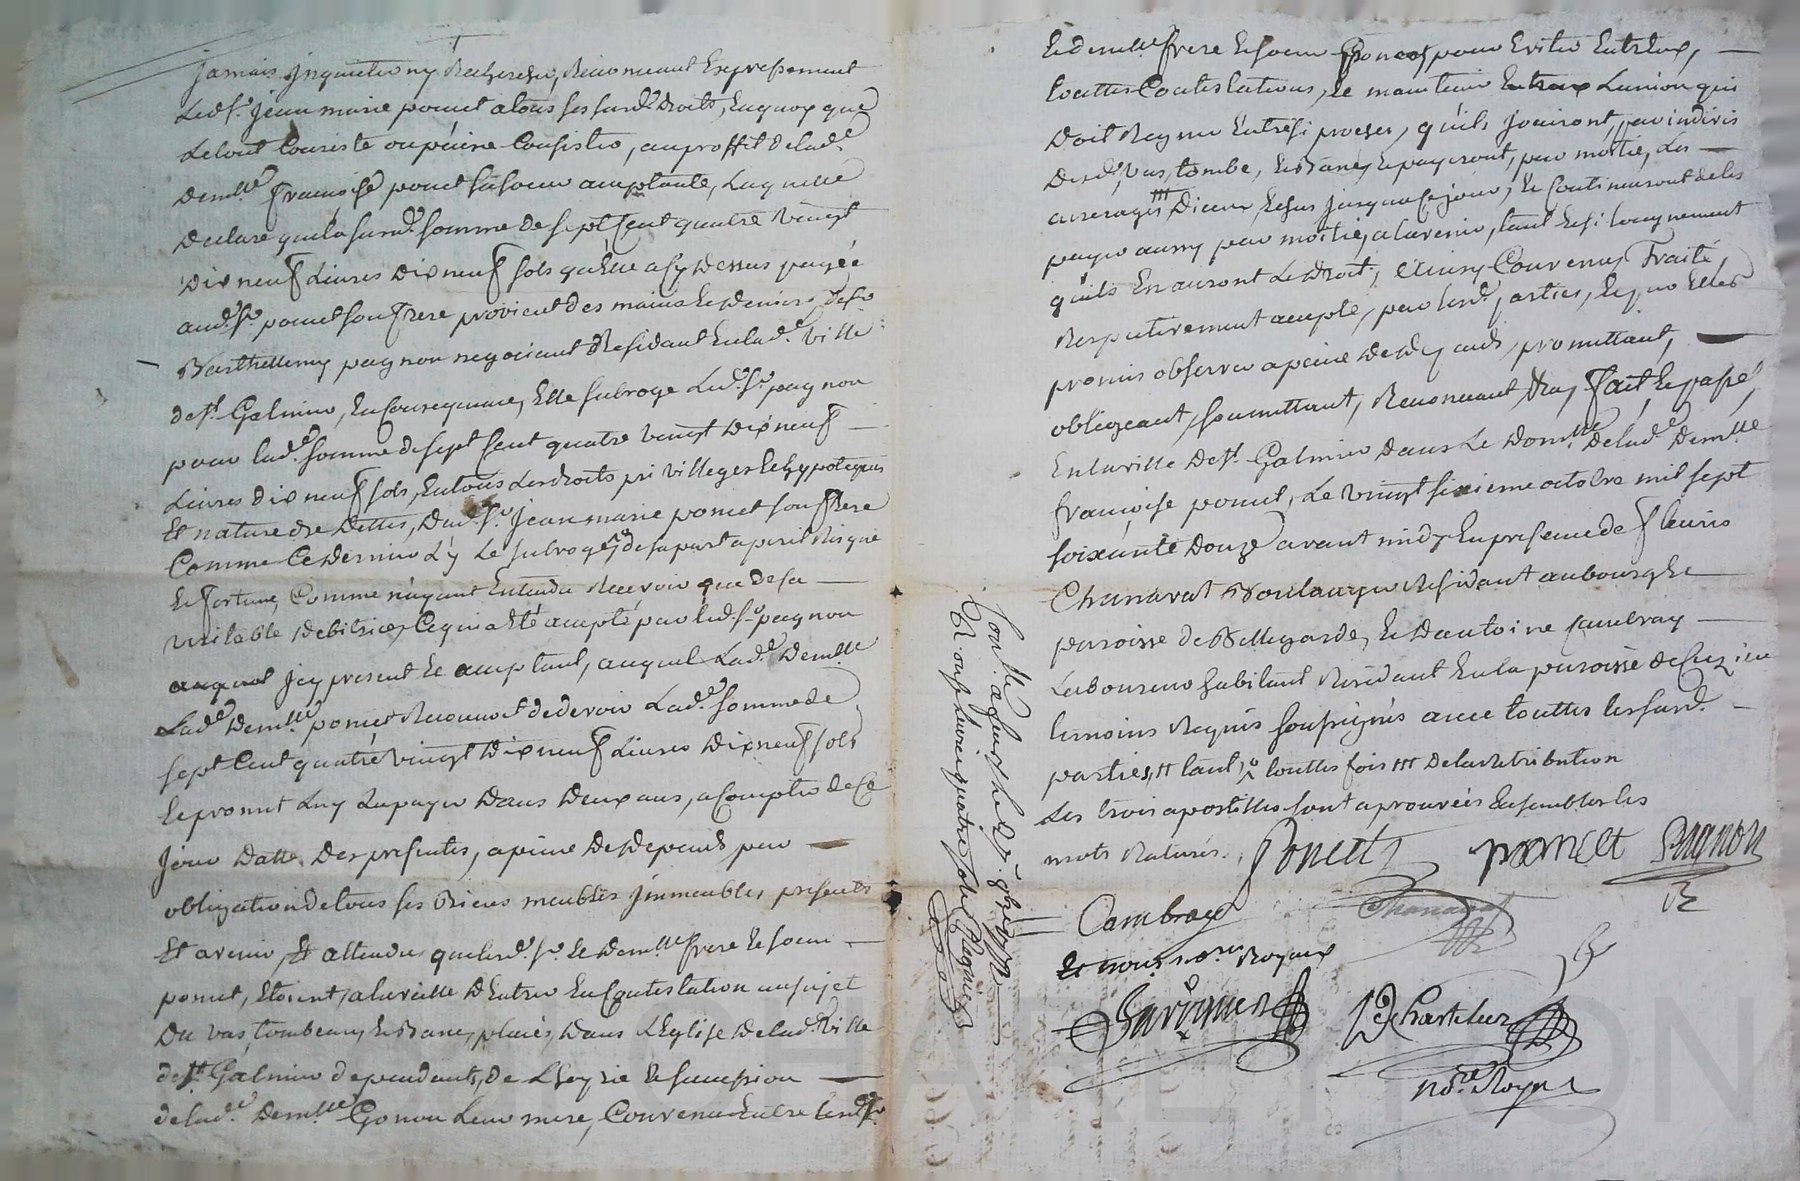 jamais inquietté ny Recherché, Renoncant Expressement
Led. sr. jean marie poncet a tous ses susd. droits, En quoy que
Le tout Consiste ou puisse Consister, au proffit de lad.e
dem.lle françoise poncet sa soeur acceptante, Laquelle
declare que la susd.e somme de sept Cent quatre vingt
dix neuf Livres dix neuf sols qu'elle a cy dessus payée
aud. sr. poncet son frere provient des mains et deniers de sr.
Barthellemy pagnon negociant Residant En lad.e ville
de st. Galmier, En Consequence, Elle subroge Led. sr. pagnon
pour lad.e somme de sept Cent quatre vingt dix neuf
Livres dix neuf sols, En tous Les droits privilleges et hyppoteques
Et nature de dettes, dud. sr. jean marie poncet son frere
Comme Ce dernier L'y Le subroge, de sa part a peril Risque
Et fortune, Comme n'ayant Entendu Recevoir que de sa
veritable debitrice, Ce qui a Eté accepté par led. sr. pagnon
auquel jcy present Et acceptant, auquel Lad.e dem.lle
Lad.e dem.lle poncet Reconnoit de devoir Lad.e somme de
sept Cent quatre vingt dix neuf Livres dix neuf sols
Et promet Luy La payer dans deux ans, a Compter de Ce
jour datte des presentes, a peine de depends par
obligation de tous ses Biens meubles jmmeubles, presents
Et avenir, Et attendu que lesd. sr. Et dem.lle frere Et soeur
poncet, Etoient a la veille d'Entrer En Contestation au sujet
du vas, tombeau, Et Banc, placés dans L'Eglise de lad.e ville
de st. Galmier dependants, de L'hoyrie Et succession
de lad.e dem.lle Gonon Leur mere, Convenu Entre lesd. sr.
Et dem.lle frere Et soeur Poncet, pour Eviter Entr'eux,
touttes Contestations, Et maintenir Entreux L'union qui
doit Regner Entre si proches, qu'ils jouiront, par indivis
desd. vas, tombe, Et Banc, Et payeront, par moitié, Les
arrerages ttt d'iceux, Echus jusqu'a Ce jour, Et Continueront de les
payer aussy par moitié, a l'avenir, tant Et si longuement
qu'ils En auront Le droit, Ainsy Convenu, Traité,
Respectivement accepté, par lesd. parties, Et que Elles
promis observer a peine de depends, promettant,
obligeant, soumettant, Renoncant, &a, fait, Et passé,
En la ville de st. Galmier dans Le dom.lle de lad.e dem.lle
françoise poncet, Le vingt sixieme octobre mil sept
soixante douze avant midy En presence de fleurie
Chanavat Boulanger Residant au bourg Et
paroisse de Bellegarde, Et d'antoine Cambray
Laboureur habitant Residant En la paroisse de Cuzieu
temoins Requis soussignés avec touttes les susd.
parties, tt tant, touttes fois ttt de la Retribution
Les trois apostilles sont aprouvées Ensemble les
mots Raturés. Poncett poncet Pagnon
Cambray Chanavat
Et nous no.res Royaux
no.re Royal